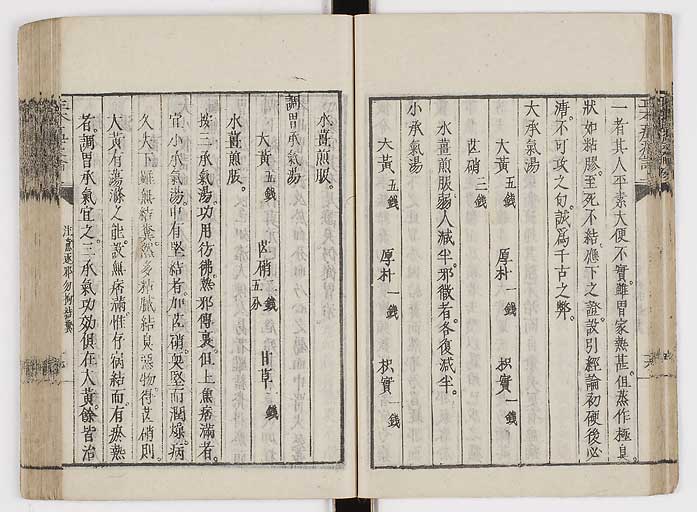 一者其人平素大便不實雖胃家熱甚但蒸作極臭
狀如粘膠至死不結應下之證設引經論初硬後必
溏不可攻之句誠為千古之弊
大承氣湯
大黃五錢 厚朴一錢 枳實一錢
芒硝二錢
水薑煎服弱人減半邪微者各復減半
小承氣湯
大黃五錢 厚朴一錢 枳實一錢
水薑煎服
調胃承氣湯
大黃五錢 芒硝二錢五分 甘草一錢
水薑煎服
按三承氣湯功用彷彿熱邪傳裏但上焦痞滿者
宜小承氣湯中有堅結者加芒硝耎堅而潤燥病
久失下雖無結糞然多粘膩結臭惡物得芒硝則
大黃有蕩滌之能設無痞滿惟存宿結而有瘀熱
者調胃承氣宜之三承氣功效俱在大黃餘皆治
注意逐邪勿拘結糞